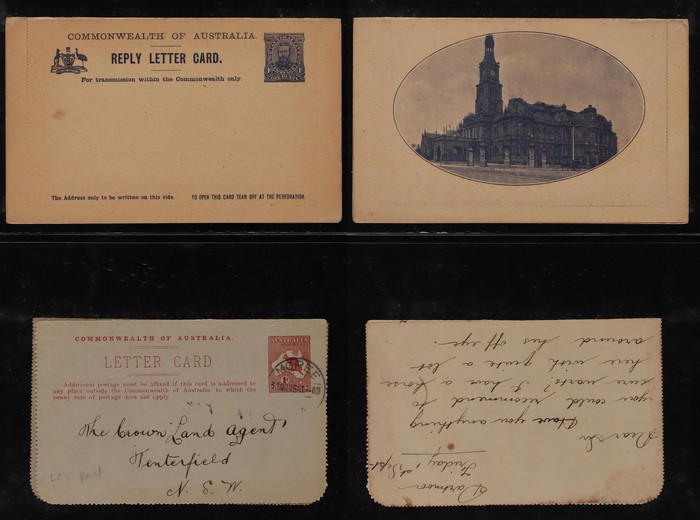 COMMONWEALTH OF AUSTRALIA.
REPLY LETTER CARD.
For transmission within the Commonwealth only.
The Address only to be written on this side.
TO OPEN THIS CARD TEAR OFF AT THE PERFORATION.
COMMONWEALTH OF AUSTRALIA.
LETTER CARD
Additional postage must be affixed if this card is addressed to
any place outside the Commonwealth of Australia to which the
penny rate of postage does not apply
AUSTRALIA
MOREE
The Crown Land Agent
Tenterfield
N. S. W.
Friday 1st Sept
Dear Sir
Have you anything
you could recommend to
cure warts. I have a horse
here with quite a lot
around his off eye.